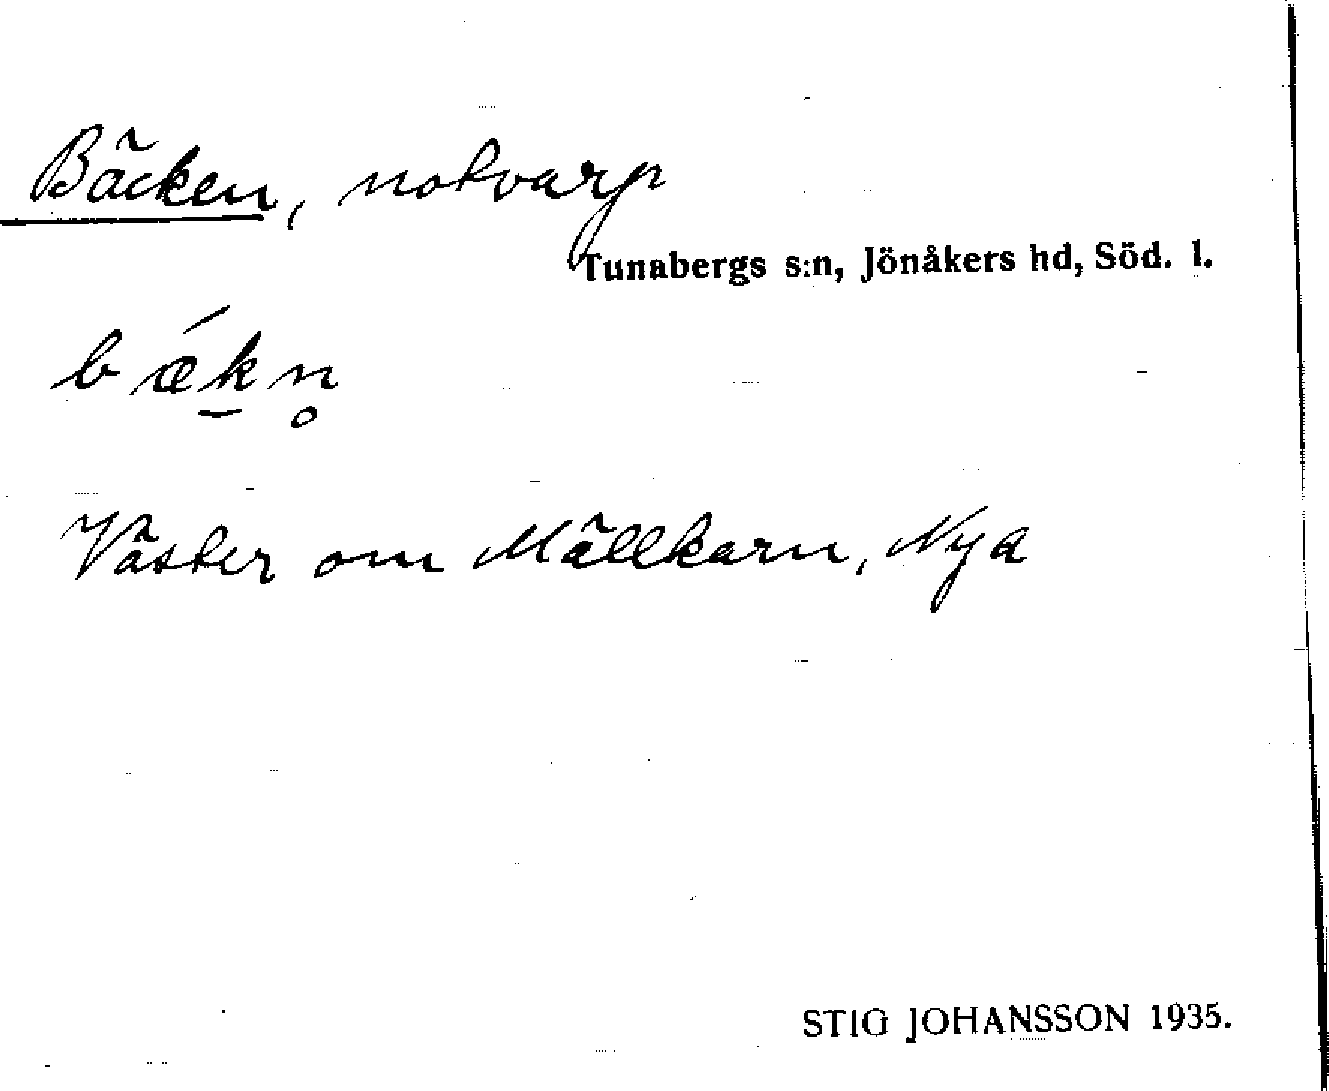 Bäcken, notvarp
Tunabergs s:n, Jönåkers hd, Söd. l.
bǽk̲n̥
Väster om Mällkarn, Nya
STIG JOHANSSON 1935.